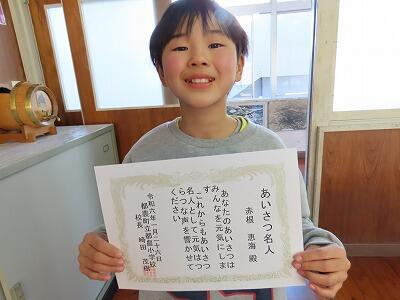 あいさつ名人
赤根 恵海 殿
あなたのあいさつは
みんなを元気にしま
す
これからもあいさつ
名人として元気はつ
らつな声を響かせて
ください
令和六年一月二十六日
都農町立都農小学校
校長 崎田 茂樹